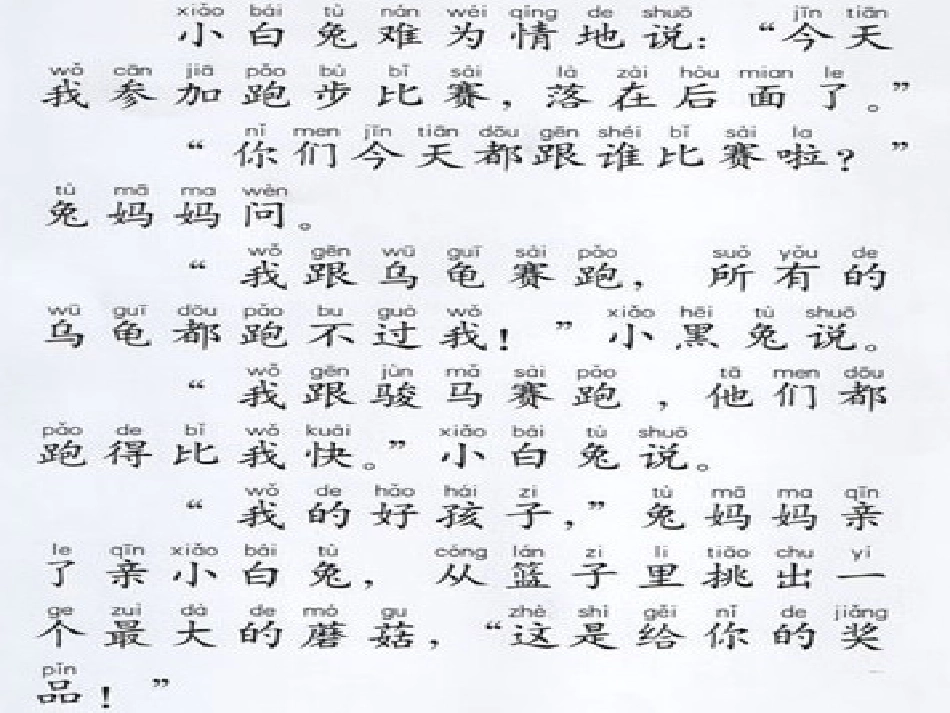 xiǎo bái tù nán wéi qíng de shuō jīn tiān
小白兔难为情地说：“今天
wǒ cān jiā pǎo bù bǐ sài là zài hòu mian le
我参加跑步比赛，落在后面了。”
nǐ men jīn tiān dōu gēn shéi bǐ sài la
“你们今天都跟谁比赛啦？”
tù mā ma wèn
兔妈妈问。
wǒ gēn wū guī sài pǎo suǒ yǒu de
“我跟乌龟赛跑，所有的
wū guī dōu pǎo bu guò wǒ xiǎo hēi tù shuō
乌龟都跑不过我！”小黑兔说。
wǒ gēn jùn mǎ sài pǎo tā men dōu
“我跟骏马赛跑，他们都
pǎo de bǐ wǒ kuài xiǎo bái tù shuō
跑得比我快。”小白兔说。
wǒ de hǎo hái zi tù mā ma qīn
“我的好孩子，”兔妈妈亲
le qīn xiǎo bái tù cóng lán zi li tiāo chu yí
了亲小白兔，从篮子里挑出一
ge zuì dà de mó gu zhè shì gěi nǐ de jiǎng
个最大的蘑菇，“这是给你的奖
pǐn
品！”